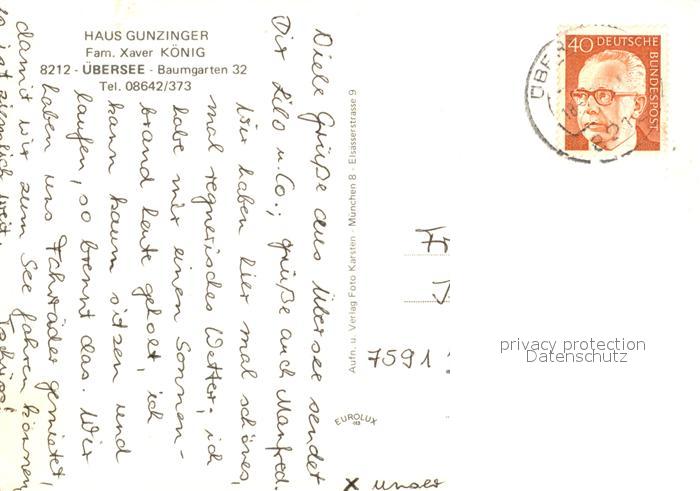 HAUS GUNZINGER
Fam. Xaver KÖNIG
8212 - ÜBERSEE - Baumgarten 32
Tel. 08642/373
Viele Grüße aus Übersee sendet
Dir Lilo u. Co.; grüße auch Manfred.
Wir haben hier mal schönes,
mal regnerisches Wetter; ich
habe mir einen Sonnen-
brand heute geholt, ich
kann kaum sitzen und
laufen, so brennt das. Wir
haben uns Fahrräder gemietet,
damit wir zum See fahren können,
ist ziemlich weit.
Aufn. u. Verlag Foto Karsten · München 8 · Elsasserstrasse 9
EUROLUX
40 DEUTSCHE
BUNDESPOST
ÜBER
7591
privacy protection
Datenschutz
x unser